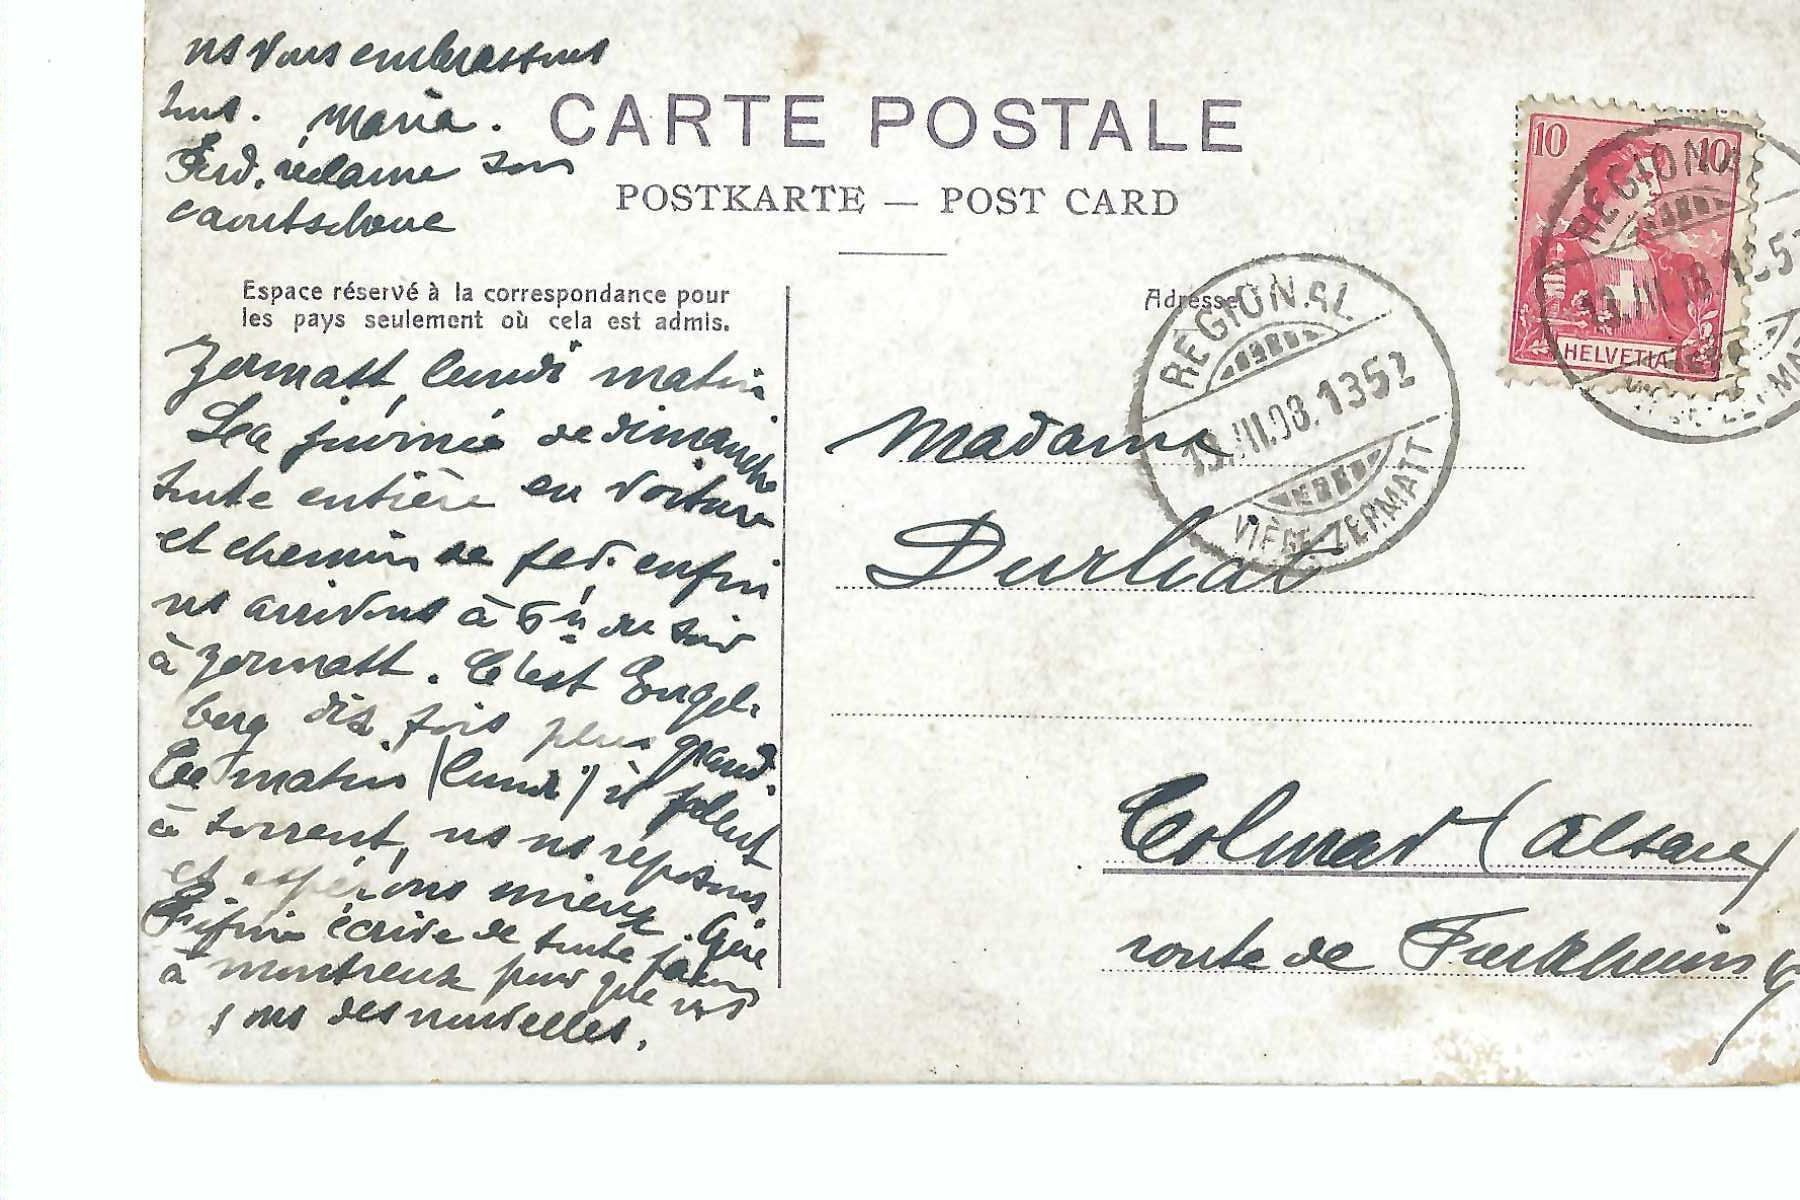 ns vous embrassons
tous. Maria.
Ferd. réclame son
caoutschouc
CARTE POSTALE
POSTKARTE — POST CARD
Espace réservé à la correspondance pour
les pays seulement où cela est admis.
Zermatt, lundi matin.
La journée de dimanche
toute entière en voiture
et chemin de fer. enfin
ns arrivons à 6 h du soir
à Zermatt. C'est Engel-
berg dix fois plus grand.
Ce matin (lundi) il pleut
à torrent, ns ns reposons,
et espérons mieux. Que
écrive de toute façon
à Montreux pour que ns
ons des nouvelles.
Adresse
10 10
HELVETIA
REGIONAL
13.III.08.1352
VIÈGE-ZERMATT
REGIONAL
13.III.08.1352
VIÈGE-ZERMATT
Madame
Durliat
Colmar (Alsace)
route de